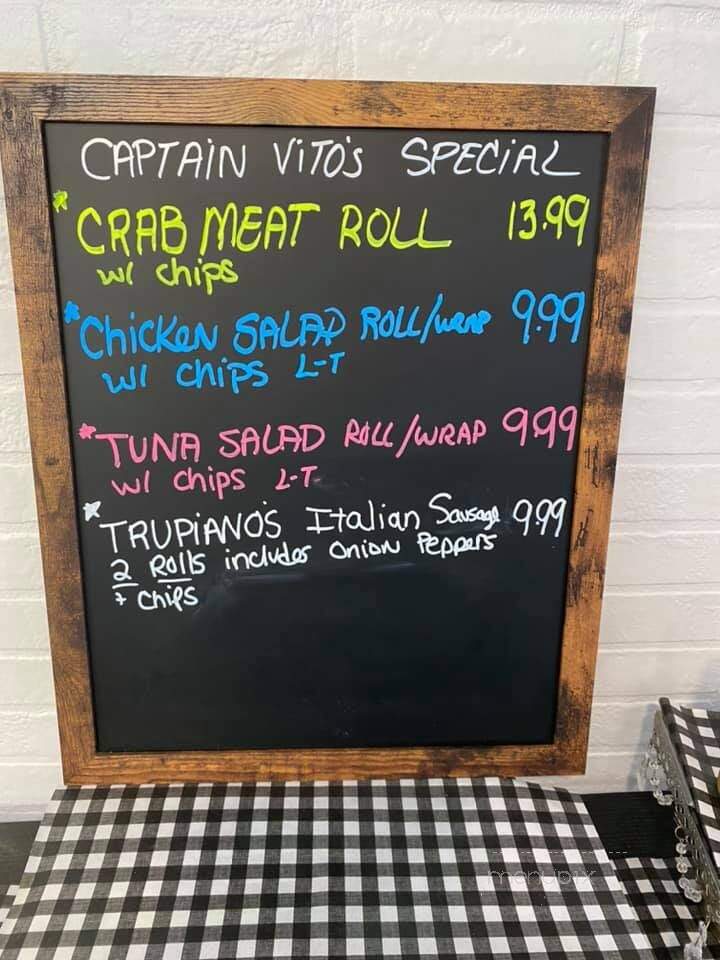 CAPTAIN VITO'S SPECIAL
*CRAB MEAT ROLL 13.99
w/ chips
*Chicken SALAD ROLL/WRAP 9.99
w/ chips L-T
*TUNA SALAD ROLL/WRAP 9.99
w/ chips L-T
*TRUPIANO'S Italian Sausage 9.99
2 Rolls includes Onion Peppers
+ chips
menupix